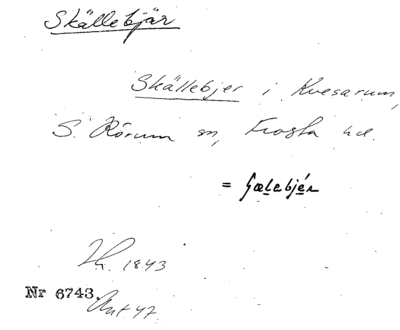 Skällebjär
Skällebjer i Kvesarum,
S. Rörum sn, Frosta hd.
= ʃælebjér
Lh. 1843
Nr 6743. Ant 47.